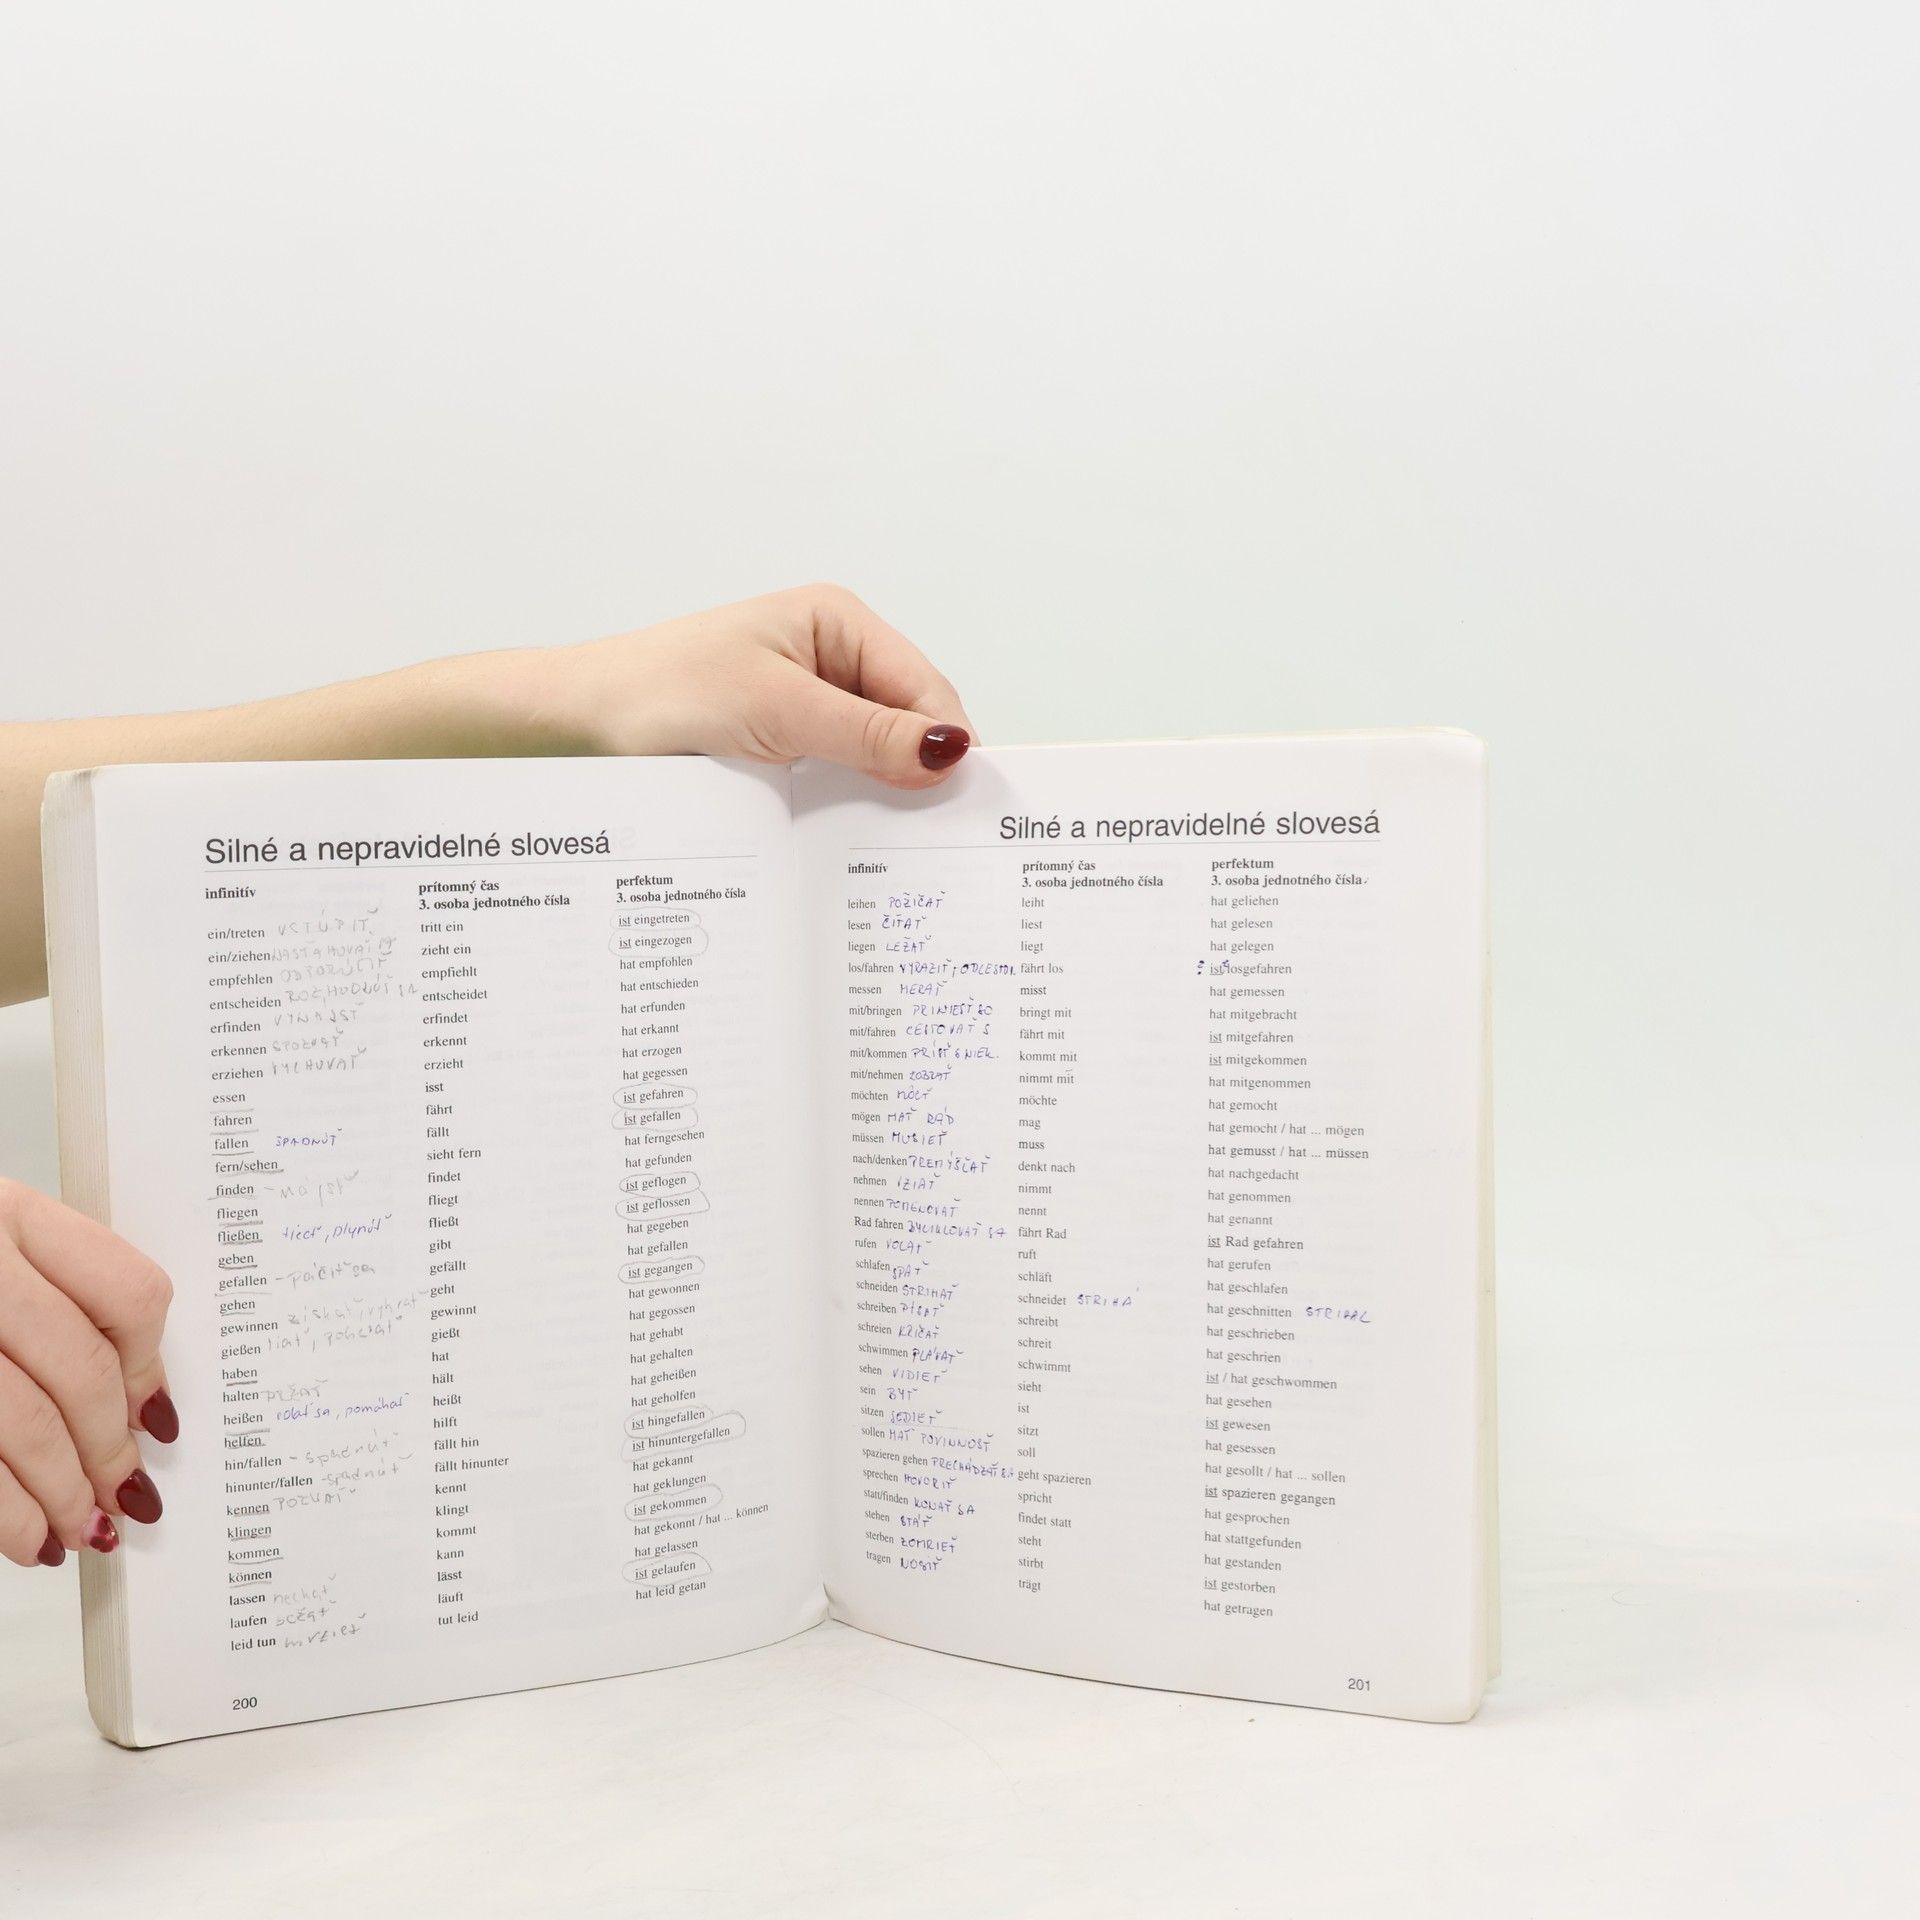 Silné a nepravidelné slovesá
infinitív prítomný čas perfektum
3. osoba jednotného čísla 3. osoba jednotného čísla
ein/treten VSTÚPIŤ tritt ein ist eingetreten
ein/ziehen NASŤAHOVAŤ SA zieht ein ist eingezogen
empfehlen ODPORÚČIŤ empfiehlt hat empfohlen
entscheiden ROZHODNÚŤ SA entscheidet hat entschieden
erfinden VYNÁJSŤ erfindet hat erfunden
erkennen SPOZNAŤ erkennt hat erkannt
erziehen VYCHOVAŤ erzieht hat erzogen
essen isst hat gegessen
fahren fährt ist gefahren
fallen SPADNÚŤ fällt ist gefallen
fern/sehen sieht fern hat ferngesehen
finden - nájsť findet hat gefunden
fliegen fliegt ist geflogen
fließen tiecť, plynúť fließt ist geflossen
geben gibt hat gegeben
gefallen - páčiť sa gefällt hat gefallen
gehen geht ist gegangen
gewinnen získať, vyhrať gewinnt hat gewonnen
gießen liať, polievať gießt hat gegossen
haben hat hat gehabt
halten DRŽAŤ hält hat gehalten
heißen volať sa, pomáhať heißt hat geheißen
helfen hilft hat geholfen
hin/fallen - spadnúť fällt hin ist hingefallen
hinunter/fallen - spadnúť fällt hinunter ist hinuntergefallen
kennen POZNAŤ kennt hat gekannt
klingen klingt hat geklungen
kommen kommt ist gekommen
können kann hat gekonnt / hat ... können
lassen nechať lässt hat gelassen
laufen bežať läuft ist gelaufen
leid tun mrzieť tut leid hat leid getan
200
Silné a nepravidelné slovesá
infinitív prítomný čas perfektum
3. osoba jednotného čísla 3. osoba jednotného čísla
leihen POŽIČAŤ leiht hat geliehen
lesen ČÍTAŤ liest hat gelesen
liegen LEŽAŤ liegt hat gelegen
los/fahren VYRAZIŤ, fährt los ist losgefahren
messen MERAŤ misst hat gemessen
mit/bringen PRINIESŤ SO bringt mit hat mitgebracht
mit/fahren CESTOVAŤ S fährt mit ist mitgefahren
mit/kommen PRÍSŤ S NIEK. kommt mit ist mitgekommen
mit/nehmen ZOBRAŤ nimmt mit hat mitgenommen
möchten MÔCŤ möchte hat gemocht
mögen MAŤ RÁD mag hat gemocht / hat ... mögen
müssen MUSIEŤ muss hat gemusst / hat ... müssen
nach/denken PREMÝŠĽAŤ denkt nach hat nachgedacht
nehmen VZIAŤ nimmt hat genommen
nennen POMENOVAŤ nennt hat genannt
Rad fahren BYCIKLOVAŤ SA fährt Rad ist Rad gefahren
rufen VOLAŤ ruft hat gerufen
schlafen SPAŤ schläft hat geschlafen
schneiden STRIHAŤ schneidet STRIHÁ hat geschnitten STRIHAL
schreiben PÍSAŤ schreibt hat geschrieben
schreien KRIČAŤ schreit hat geschrien
schwimmen PLÁVAŤ schwimmt ist / hat geschwommen
sehen VIDIEŤ sieht hat gesehen
sein BYŤ ist ist gewesen
sitzen SEDIEŤ sitzt hat gesessen
sollen MAŤ POVINNOSŤ soll hat gesollt / hat ... sollen
spazieren gehen PRECHÁDZAŤ SA geht spazieren ist spazieren gegangen
sprechen HOVORIŤ spricht hat gesprochen
statt/finden KONAŤ SA findet statt hat stattgefunden
stehen STÁŤ steht hat gestanden
sterben ZOMRIEŤ stirbt ist gestorben
tragen NOSIŤ trägt hat getragen
201